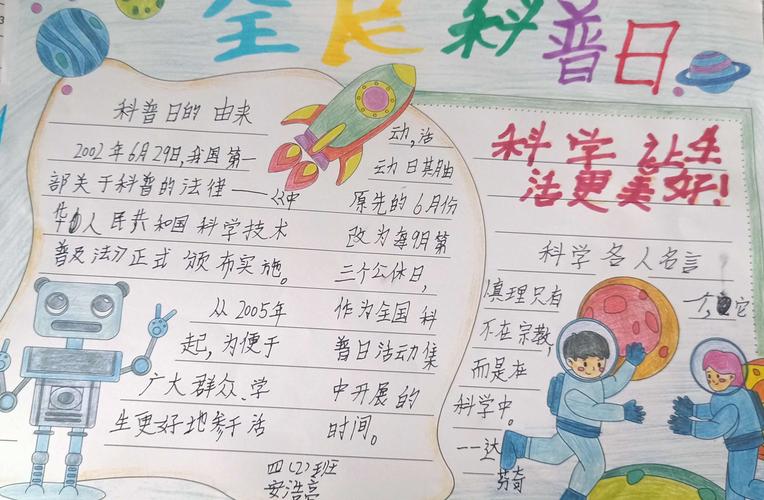 全民科普日
科普日的 由来
2002年6月29日,我国第一
部关于科普的法律——《中
华人民共和国科学技术
普及法》正式颁布实施。
从2005年
起,为便于
广大群众、学
生更好地参于活
动,活
动日其由
原先的6月份
改为每9月第
三个公休日,
作为全国科
普日活动集
中开展的
时间。
四(2)班
安浩
科学让生
活更美好!
科学各人名言
真理只有 一个,它
不在宗教,
而是在
科学中。
——达
芬奇